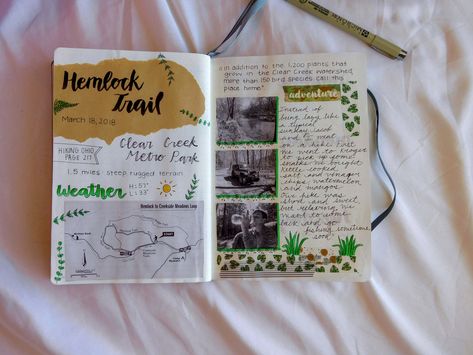 Hemlock
Trail
March 18, 2018
Clear Creek
Metro Park
HIKING OHIO
PAGE 217
1.5 miles steep rugged terrain
weather
H: 53°
L: 33°
Hemlock to Creekside Meadows Loop
START
"in addition to the 1,200 plants that
grow in the Clear Creek watershed,
more than 150 bird species call this
place home."
adventure
Instead of
being lazy like
a typical
sunday, Jacob
and I went
on a hike. First
we went to kroger
to pick up some
snacks. We bought
kettle cooked
salt and vinegar
chips, watermelon
and mangos.
Our hike was
short and sweet
but relaxing. We
want to come
back and go
fishing sometime
soon.